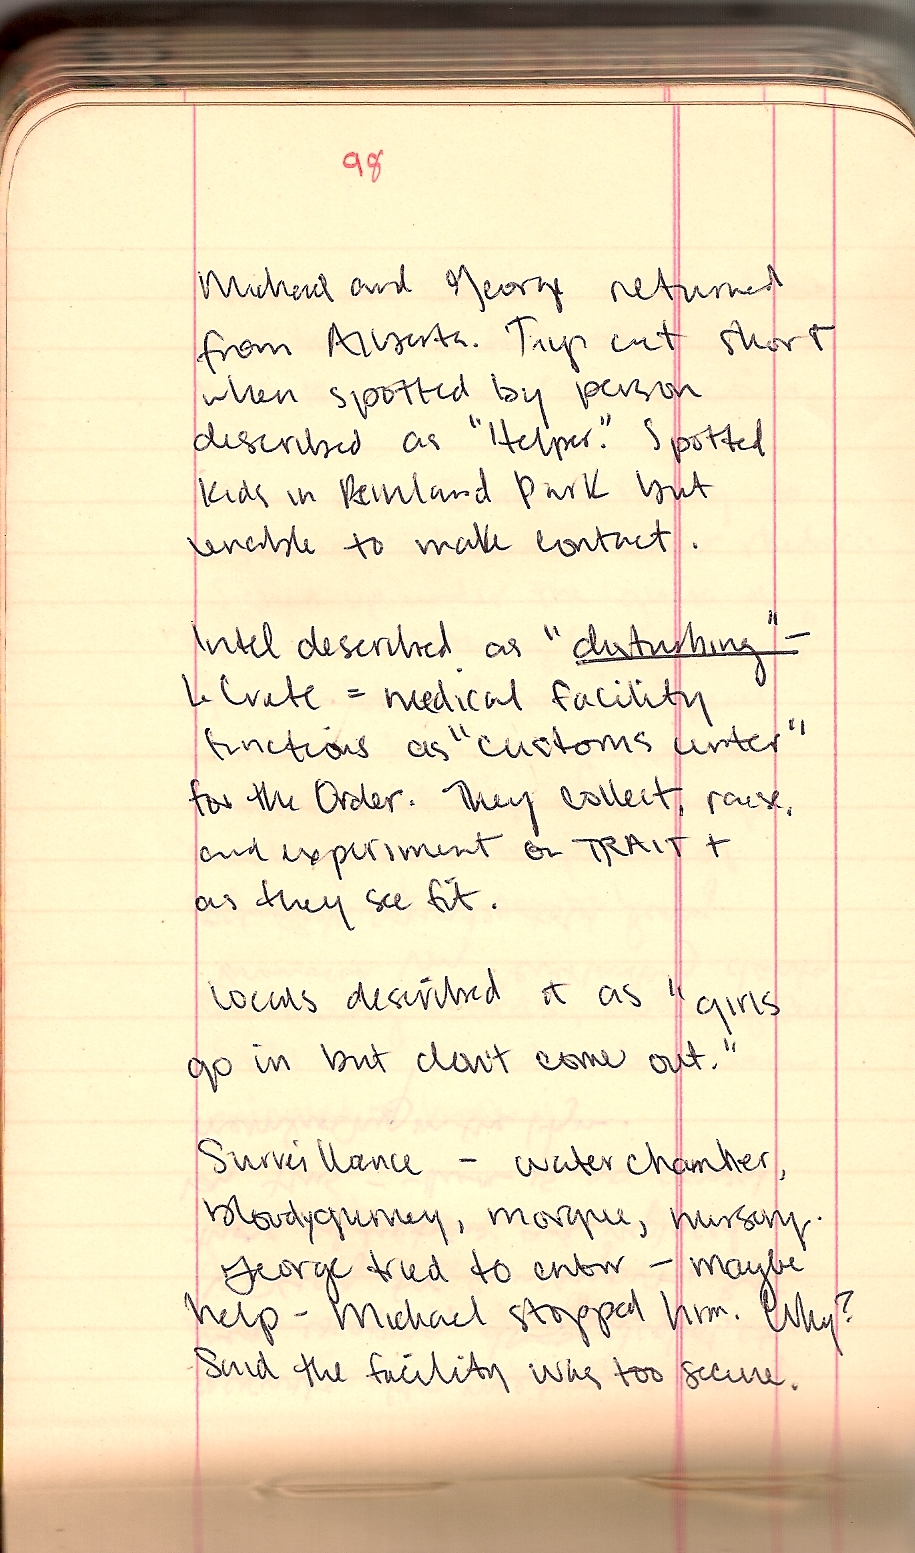 98
Michael and George returned
from Alberta. Trip cut short
when spotted by person
described as "Helper." Spotted
kids in Park but
unable to make contact.
Intel described as "disturbing" –
Crate = medical facility
functions as "customs center"
for the Order. They collect, raise,
and experiment on TRAIT +
as they see fit.
Locals described it as "girls
go in but don't come out."
Surveillance – water chamber,
bloody gurney, morgue, nursery.
George tried to enter – maybe
help – Michael stopped him. Why?
Said the facility was too secure.